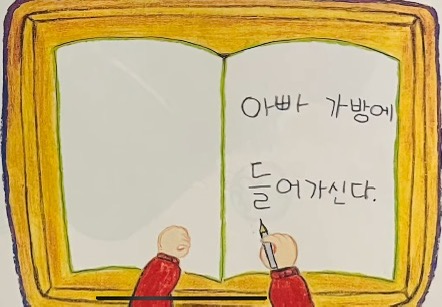 아빠 가방에
들어가신다.